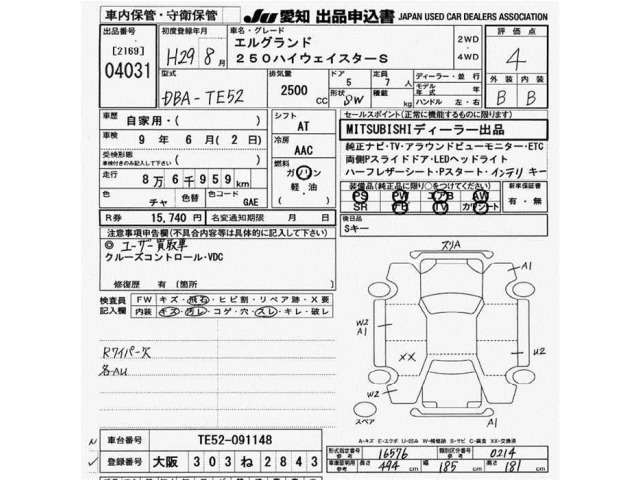 車内保管・守衛保管
JU 愛知 出品申込書 JAPAN USED CAR DEALERS ASSOCIATION
出品番号
[2169]
04031
初度登録年月
H29年 8月
車名・グレード
エルグランド
250ハイウェイスターS
2WD
4WD
評価点
4
型式
DBA-TE52
排気量
2500 CC
ドア
5
形状
SW
定員
7 人
積載
kg
ディーラー・並行
モデル年式 年
ハンドル 左・右
外装 内装
B B
車歴
自家用・( )
車検
9年 6月 (2日)
受検形態
車検付きのみ記入して下さい
( )
走行
8万 6千 959 km
色
チャ
色替
色コード
GAE
R券 15,740円
名変通知期限 月 日
シフト
AT
冷房
AAC
燃料
ガソリン
軽・油
( )
セールスポイント(正常に機能するものに限ります)
MITSUBISHIディーラー出品
純正ナビ・TV・アラウンドビューモニター・ETC
両側Pスライドドア・LEDヘッドライト
ハーフレザーシート・Pスタート・インテリキー
装備品(純正品に限り○をつけてください)
PS PW エアB AW
SR ナビ TV カワシート
新車保証書
有・無
後日品
Sキー
注意事項申告欄(不具合内容等は具体的に記入して下さい)
◎ユーザー買取車
クルーズコントロール・VDC
修復歴 有 (箇所 )
検査員記入欄
FW キズ・飛石・ヒビ割・リペア跡・X要
内装 キズ・汚レ・コゲ・穴・スレ・キレ・破レ
Rワイパー欠
各AU
ズリA
A1
W2
A1
XX
U2
W2
スペア
A1
A-キズ E-エクボ U-凹み W-補修跡 S-サビ C-腐食 XX-交換済
車台番号 TE52-091148
登録番号 大阪 303 ね 2843
形式指定番号 参考 16576
類別区分番号 参考 0214
車庫証明用 参考 長さ 494 cm 幅 185 cm 高さ 181 cm